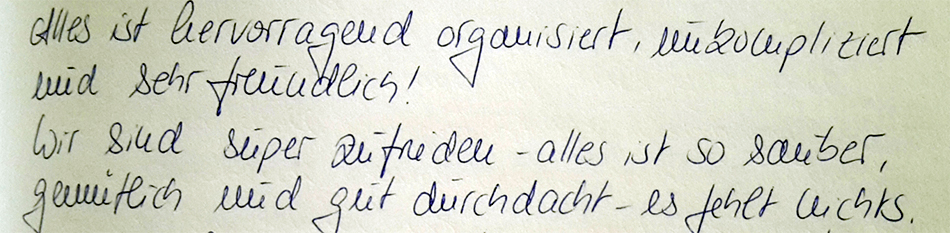 Alles ist hervorragend organisiert, unkompliziert
und sehr freundlich!
Wir sind super zufrieden - alles ist so sauber,
gemütlich und gut durchdacht - es fehlt nichts.